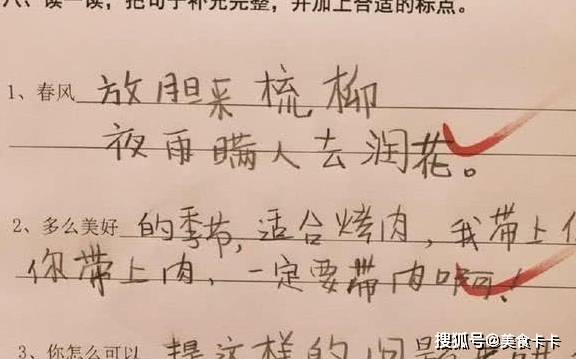 八、读一读，把句子补充完整，并加上合适的标点。
1、春风 放胆来梳柳
夜雨瞒人去润花。
2、多么美好 的季节，适合烤肉，我带上你
你带上肉，一定要带肉啊！
3、你怎么可以 提这样的问题
搜狐号@美食卡卡